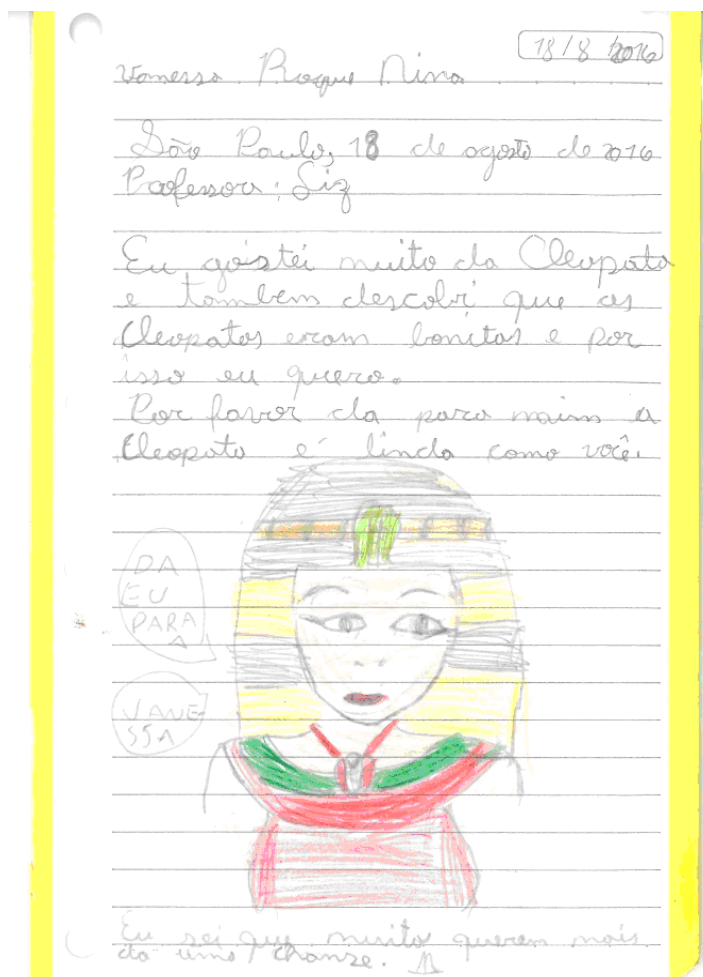 18/8/2016
Vanessa Roque Nina
São Paulo, 18 de agosto de 2016
Professora: Liz
Eu gostei muito da Cleopata
e tombem descobri que as
Cleopatas eram bonitas e por
isso eu quero.
Por favor da para maim a
Cleopata é linda como você.
DA
EU
PARA
A
VANE-
SSA
Eu sei que muito querem mais
da uma chanse.